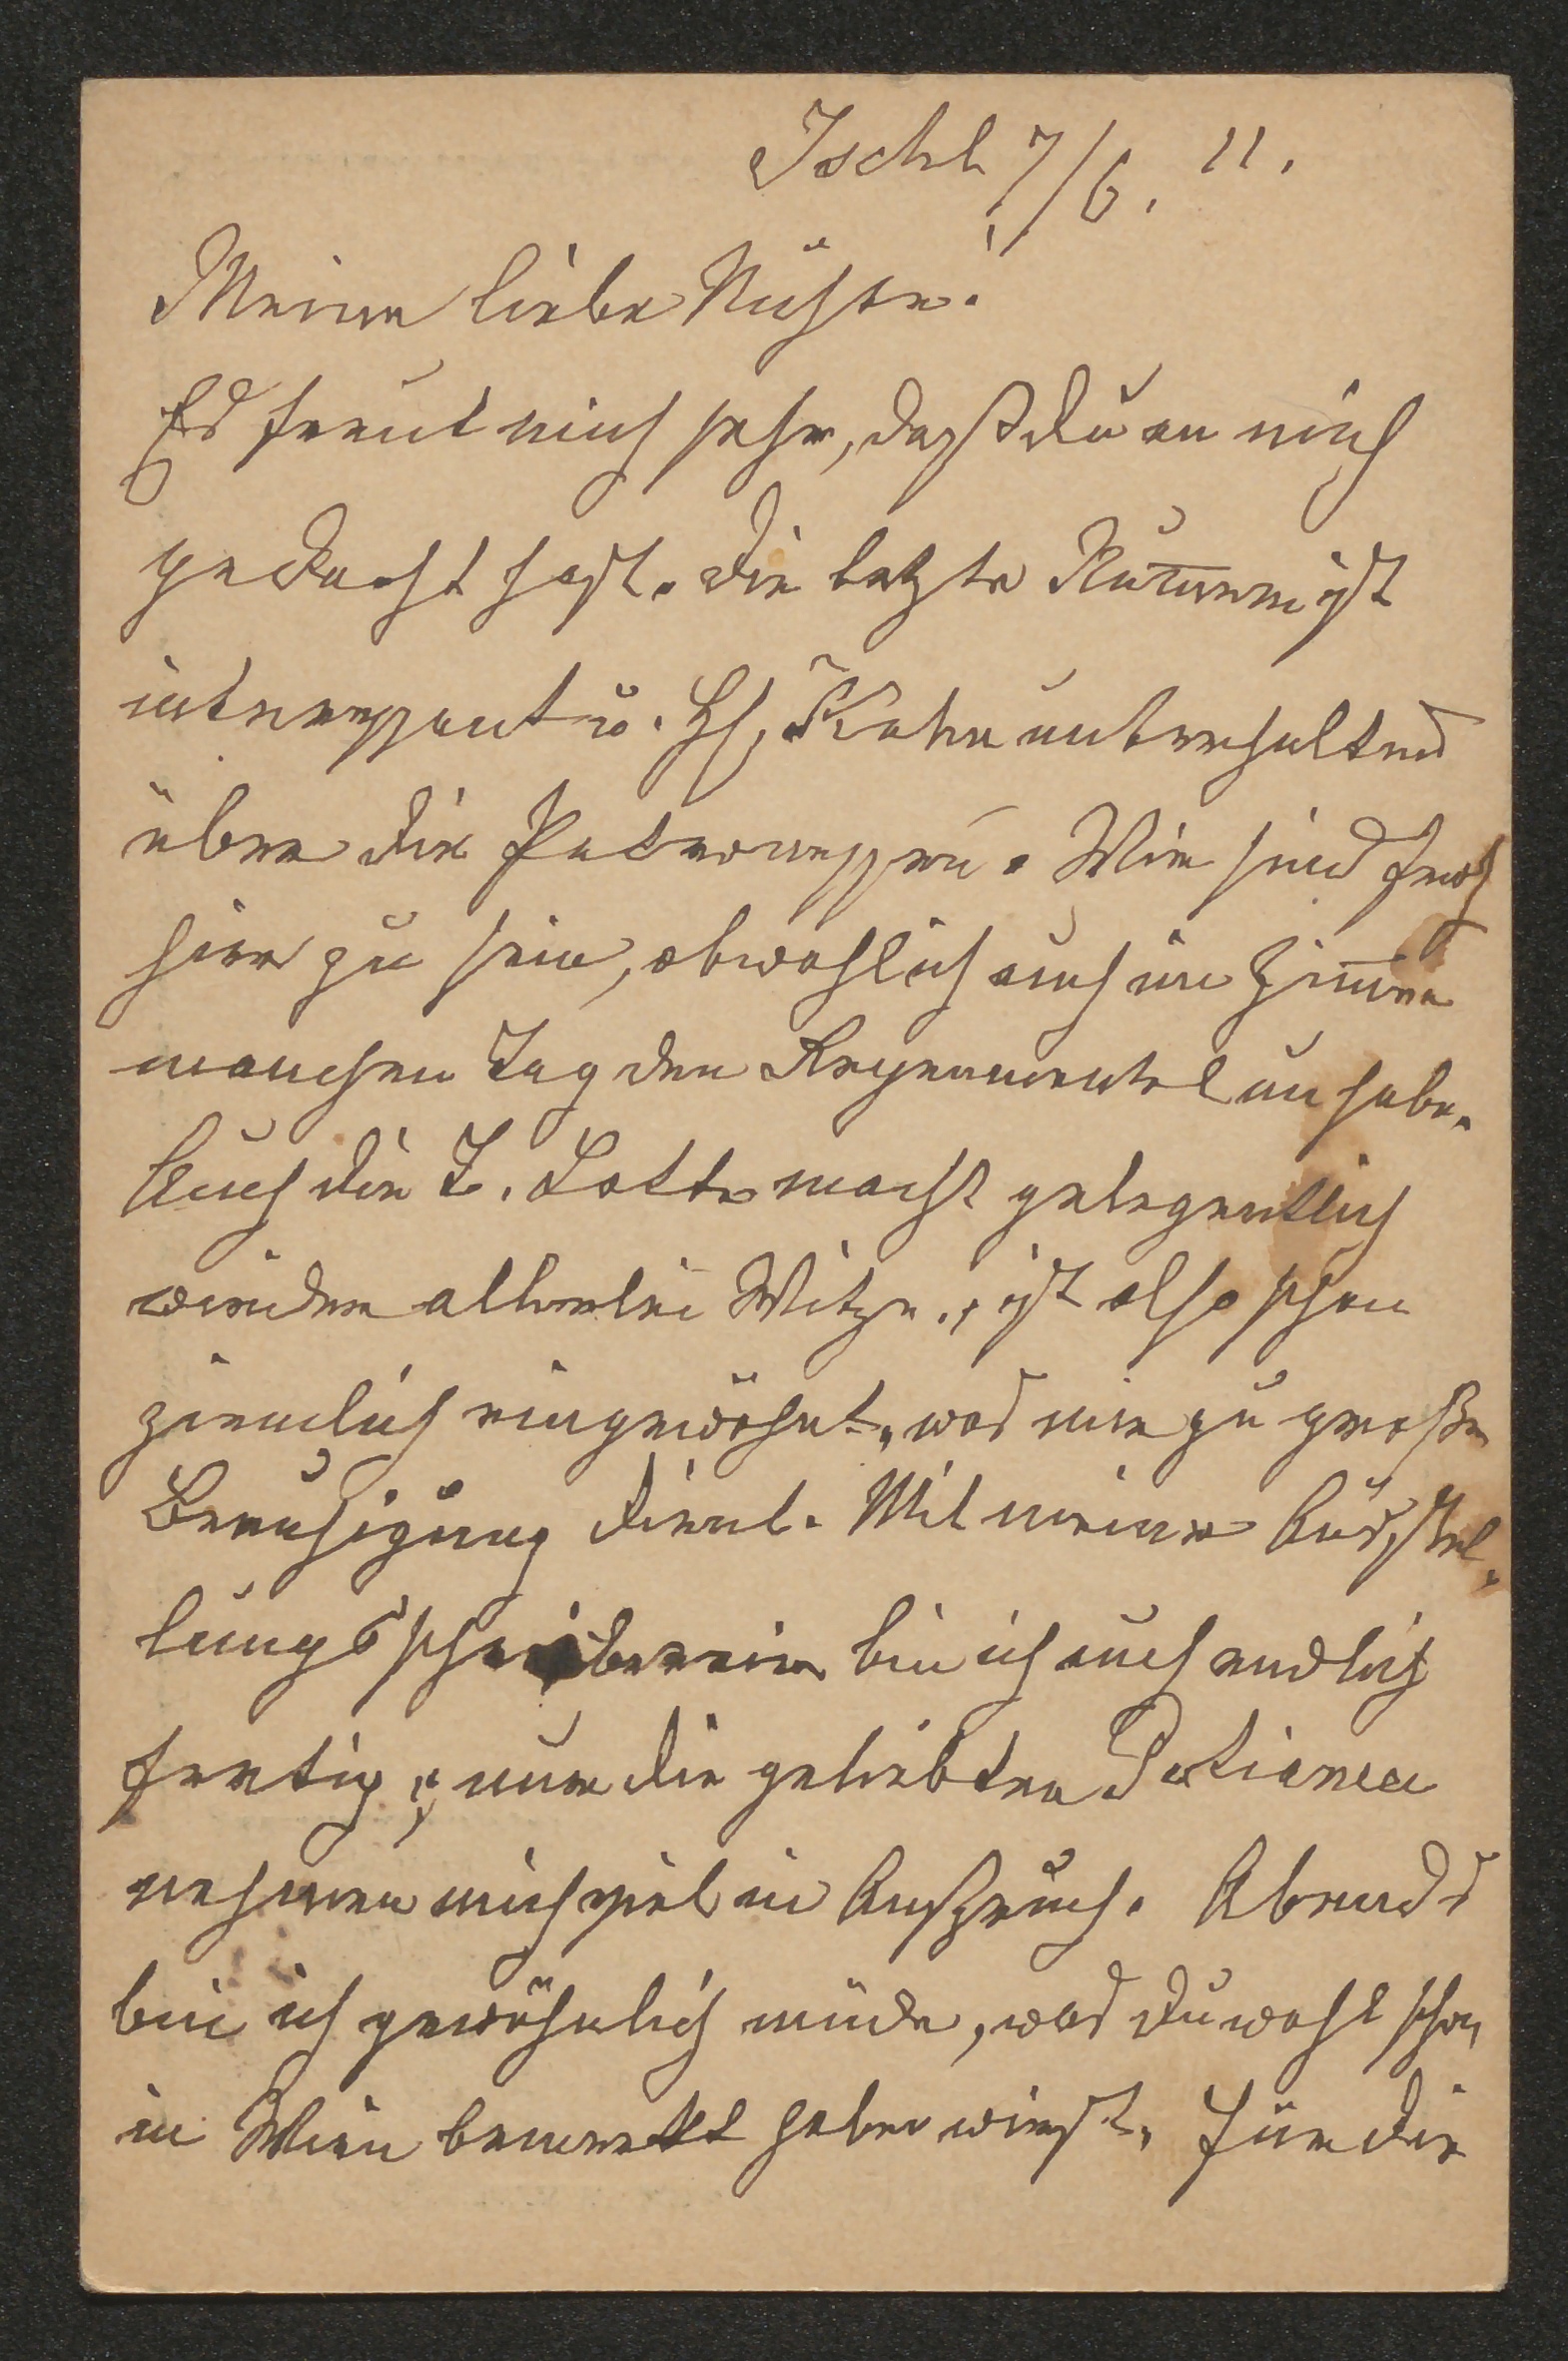 Ischl 7/6. 11.
Meine liebe Nichte!
Es freut mich sehr, daß du an mich
gedacht hast. Die letzte Num̅er ist
interessant u. Hl. Kohn unterhaltend
über die Paternesseen. Wir sind froh
hier zu sein, obwohl ich auch im Zim̅er
manchen Tag den Regenmantel um habe.
Auch die T. Lotte macht gelegentlich
wieder allerlei Witze, ist also schon
ziemlich eingewöhnt, was mir zu großer
Beruhigung dient. Mit meiner Ausstel-
lungsschreiberei bin ich auch endlich
fertig; nur die geliebten Patienten
nehmen mich viel in Anspruch. Abends
bin ich gewöhnlich müde, was du wohl schon
in Wien bemerkt haben wirst. Für die